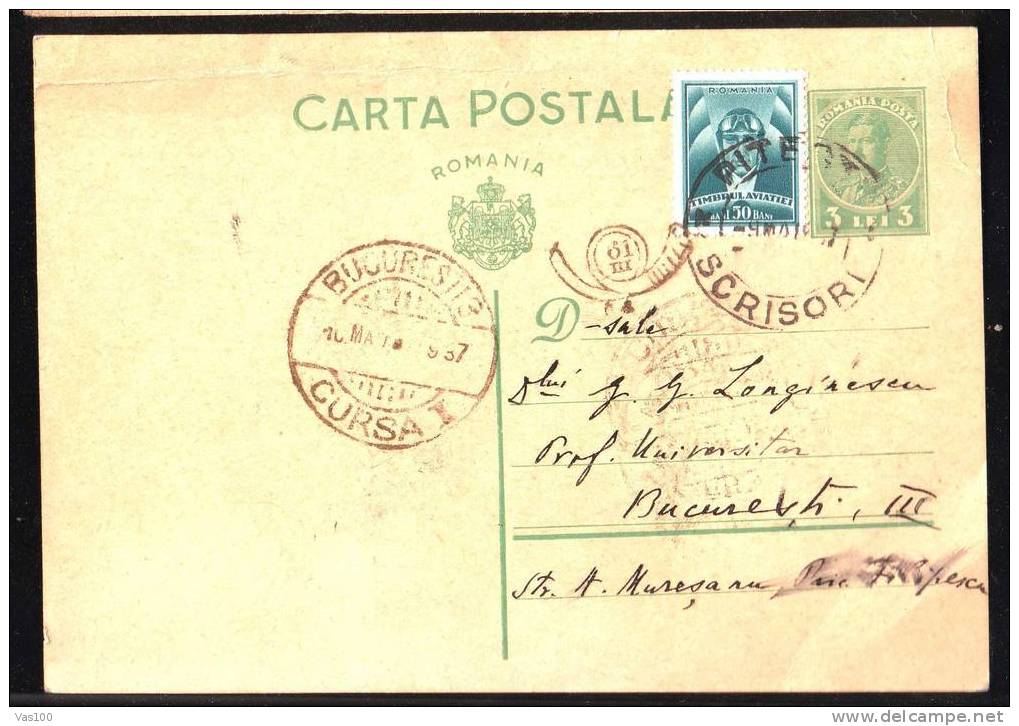 CARTA POSTALA
ROMANIA
ROMANIA
TIMBRUL AVIATIEI
BANI 50 BANI
ROMANIA POSTA
3 LEI 3
PITESTI
SCRISORI
61
III
BUCURESTI 3
10. MAI 1937
CURSA I
D-sale
Dlui G. G. Longinescu
Prof. Universitar
București, III
Str. A. Mureșanu,
Vas100
delcampe.net